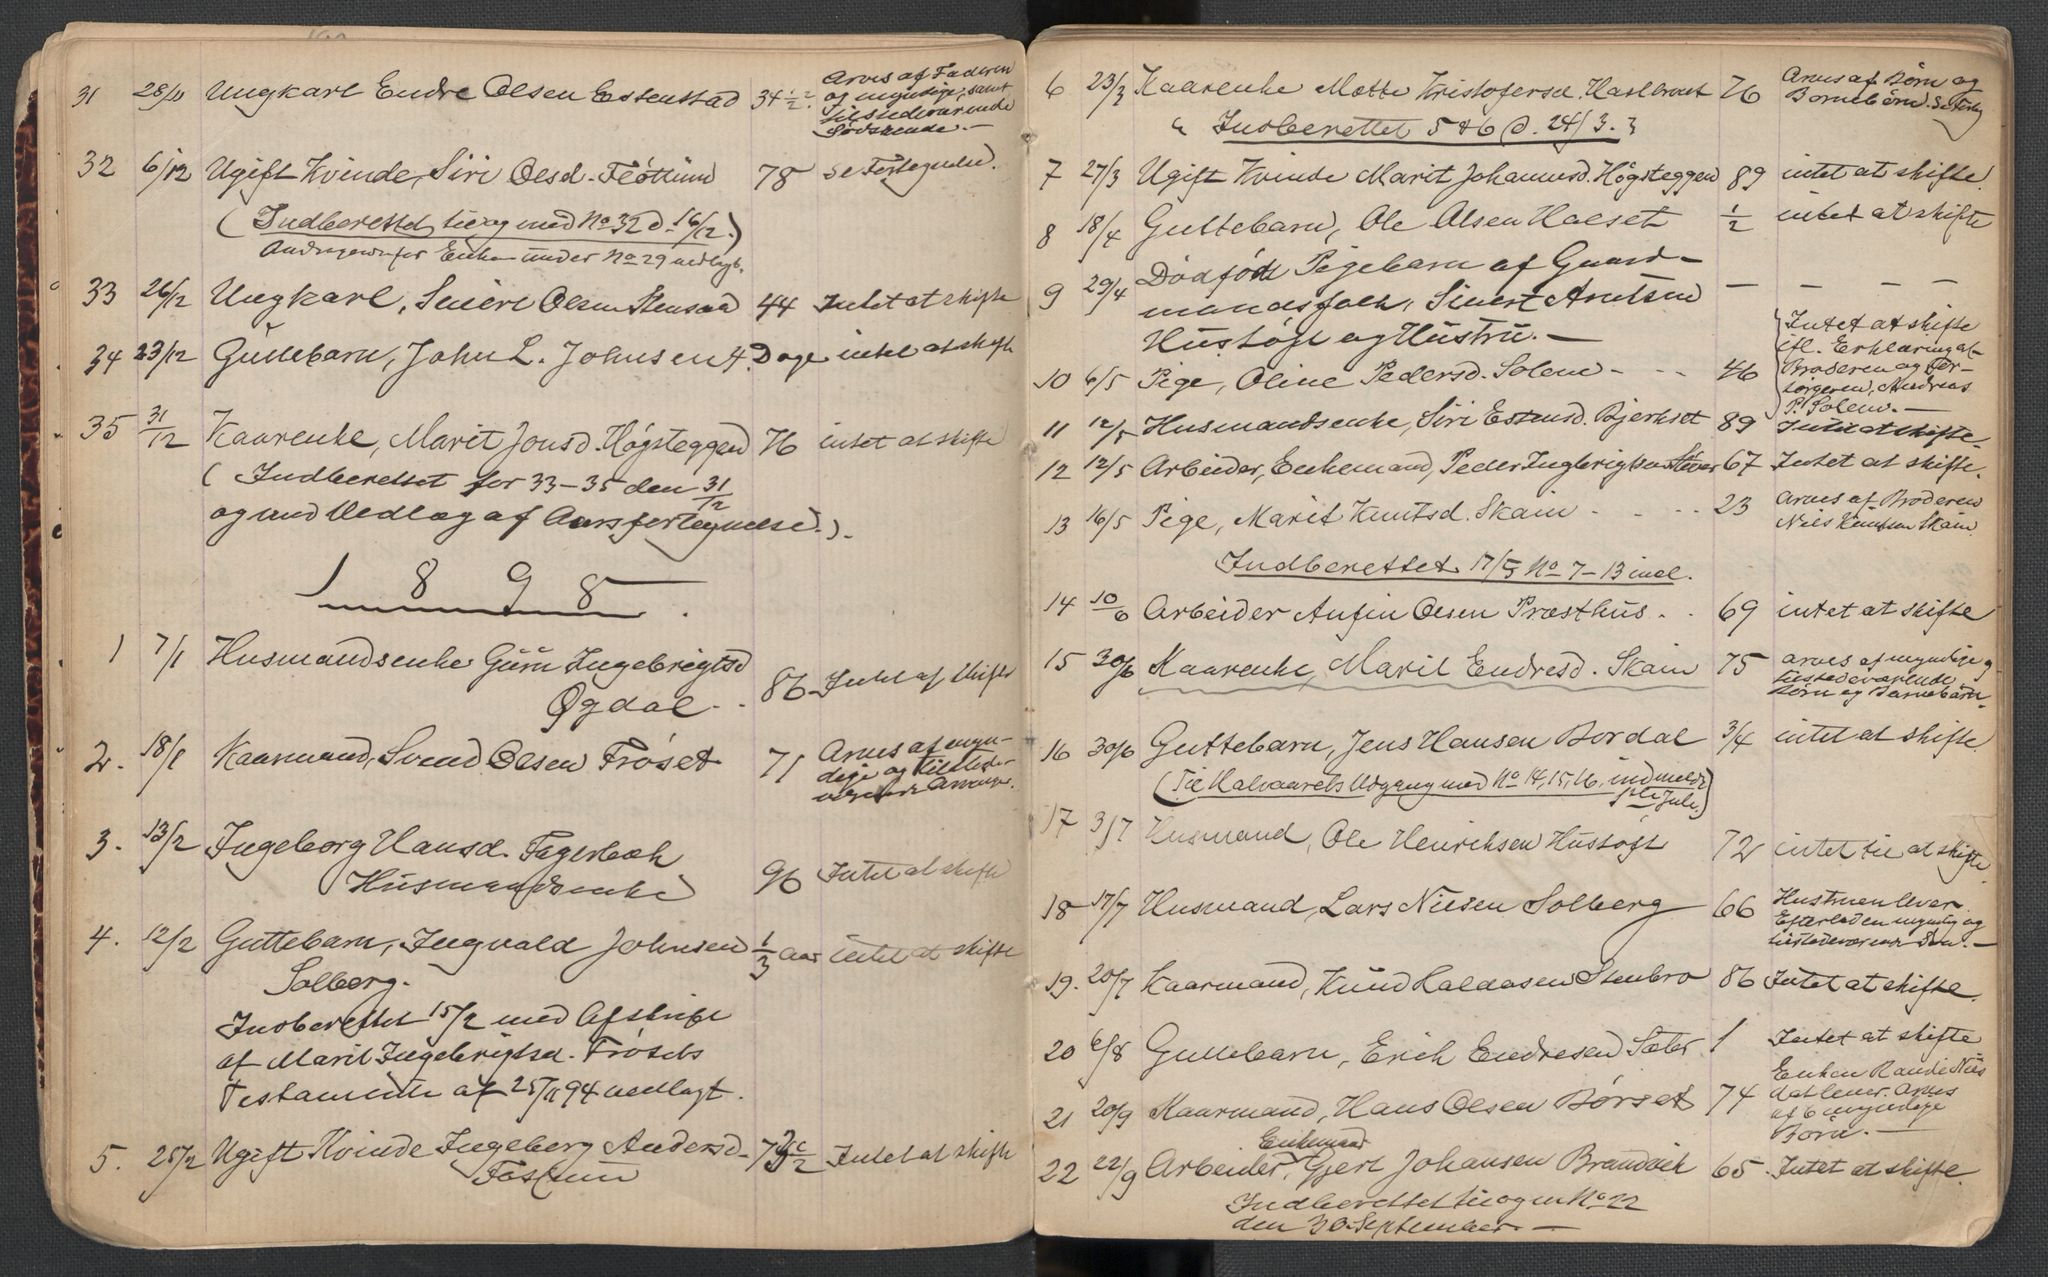 31 28/11 Ungkarl Endre Olsen Estenstad 34 1/2
Arves af Faderen
og myndige, samt
tilstedeværende
Sødskende. —
32 6/12 Ugift Kvinde, Siri Olsd. Fløttum 78 se Fortegnelse.
(Indberettet til og med No 32 d. 16/12.)
Enken under No 29 vedlagt.
33 26/12 Ungkarl, Siver Olsen Stensaa 44 Intet at skifte
34 23/12 Guttebarn, John L. Johnsen 4 Dage intet at skifte
35 31/12 Kaarenke, Marit Jonsd. Høgsteggen 76 intet at skifte
(Indberettet for 33–35 den 31/12
og med Vedlæg af Aarsfortegnelse.).
1898.
1 7/1 Husmandsenke Guru Ingebrigtsd
Øgdal. 86 Intet at skifte
2. 18/1 Kaarmand, Svend Olsen Frøset 71
Arves af myn-
dige og tilstede-
værende Arvinger.
3. 13/2 Ingeborg Hansd. Fagerbæk
Husmandsenke 96 Intet at skifte
4. 12/2 Guttebarn, Ingvald Johnsen 1/3 Aar intet at skifte
Solberg.
Indberettet 15/2 med Afskrift
af Marit Ingebrigtsd. Frøsets
Testamente af 25/11 94 vedlagt.
5. 25/2 Ugift Kvinde Ingeborg Andersd. Intet at skifte
Fossum
6 23/3 Kaarenke Mette Kristofersd. 76
Arves af Børn og
Børnebørn.
Indberettet 5 & 6 d. 24/3.
7 27/3 Ugift Kvinde Marit Johannesd. Høgsteggen 89 intet at skifte.
8 18/4 Guttebarn, Ole Olsen Halset 1/2 intet at skifte
9 29/4 Dødfødt Pigebarn af Gaard- — — — —
mandsfolk, Sivert Arntsen
Hustøft og Hustru. —
10 6/5 Pige, Oline Pedersd. Solem - - - 46
Intet at skifte
ifl. Erklæring af
Broderen og For-
sørgeren, Andreas
P. Solem. —
11 12/5 Husmandsenke, Siri Estensd. Bjerkset 89 Intet at skifte.
12 12/5 Arbeider, Enkemand, Peder Ingbrigtsen Støver 67 Intet at skifte.
13 16/5 Pige, Marit Knutsd. Skam - - - - 23
Arves af Broderen
Nils Knutsen Skam.
Indberettet 17/5 No 7–13 incl.
14 10/6 Arbeider Anfin Olsen Præsthus. . . 69 intet at skifte
15 30/6 Kaarenke, Marit Endresd. Skam 75
arves af myndige og
tilstedeværende
Børn og Barnebørn.
16 30/6 Guttebarn, Jens Hansen Bordal 3/4 intet at skifte
(Til Halvaarets Udgang med No 14, 15, 16, indmeldt
1ste Juli.)
17 3/7 Husmand, Ole Henriksen Hustøft 72 intet til at skifte
18 17/7 Husmand, Lars Nilsen Solberg 66
Hustruen lever.
Efterladt en myndig og
tilstedeværende Søn. —
19. 20/7 Kaarmand, Knud Haldosen Stenbro 86 Intet at skifte.
20 6/8 Guttebarn, Erik Endresen Sæter 1 Intet at skifte
21 20/9 Kaarmand, Hans Olsen Børset 74
Enken Randi Nils
dat lever. Arves
af 6 myndige
Børn. —
Enkemand
22 22/9 Arbeider, Gjert Johansen Brandvik 65. Intet at skifte.
Indberettet til og m No 22
den 30. September. —